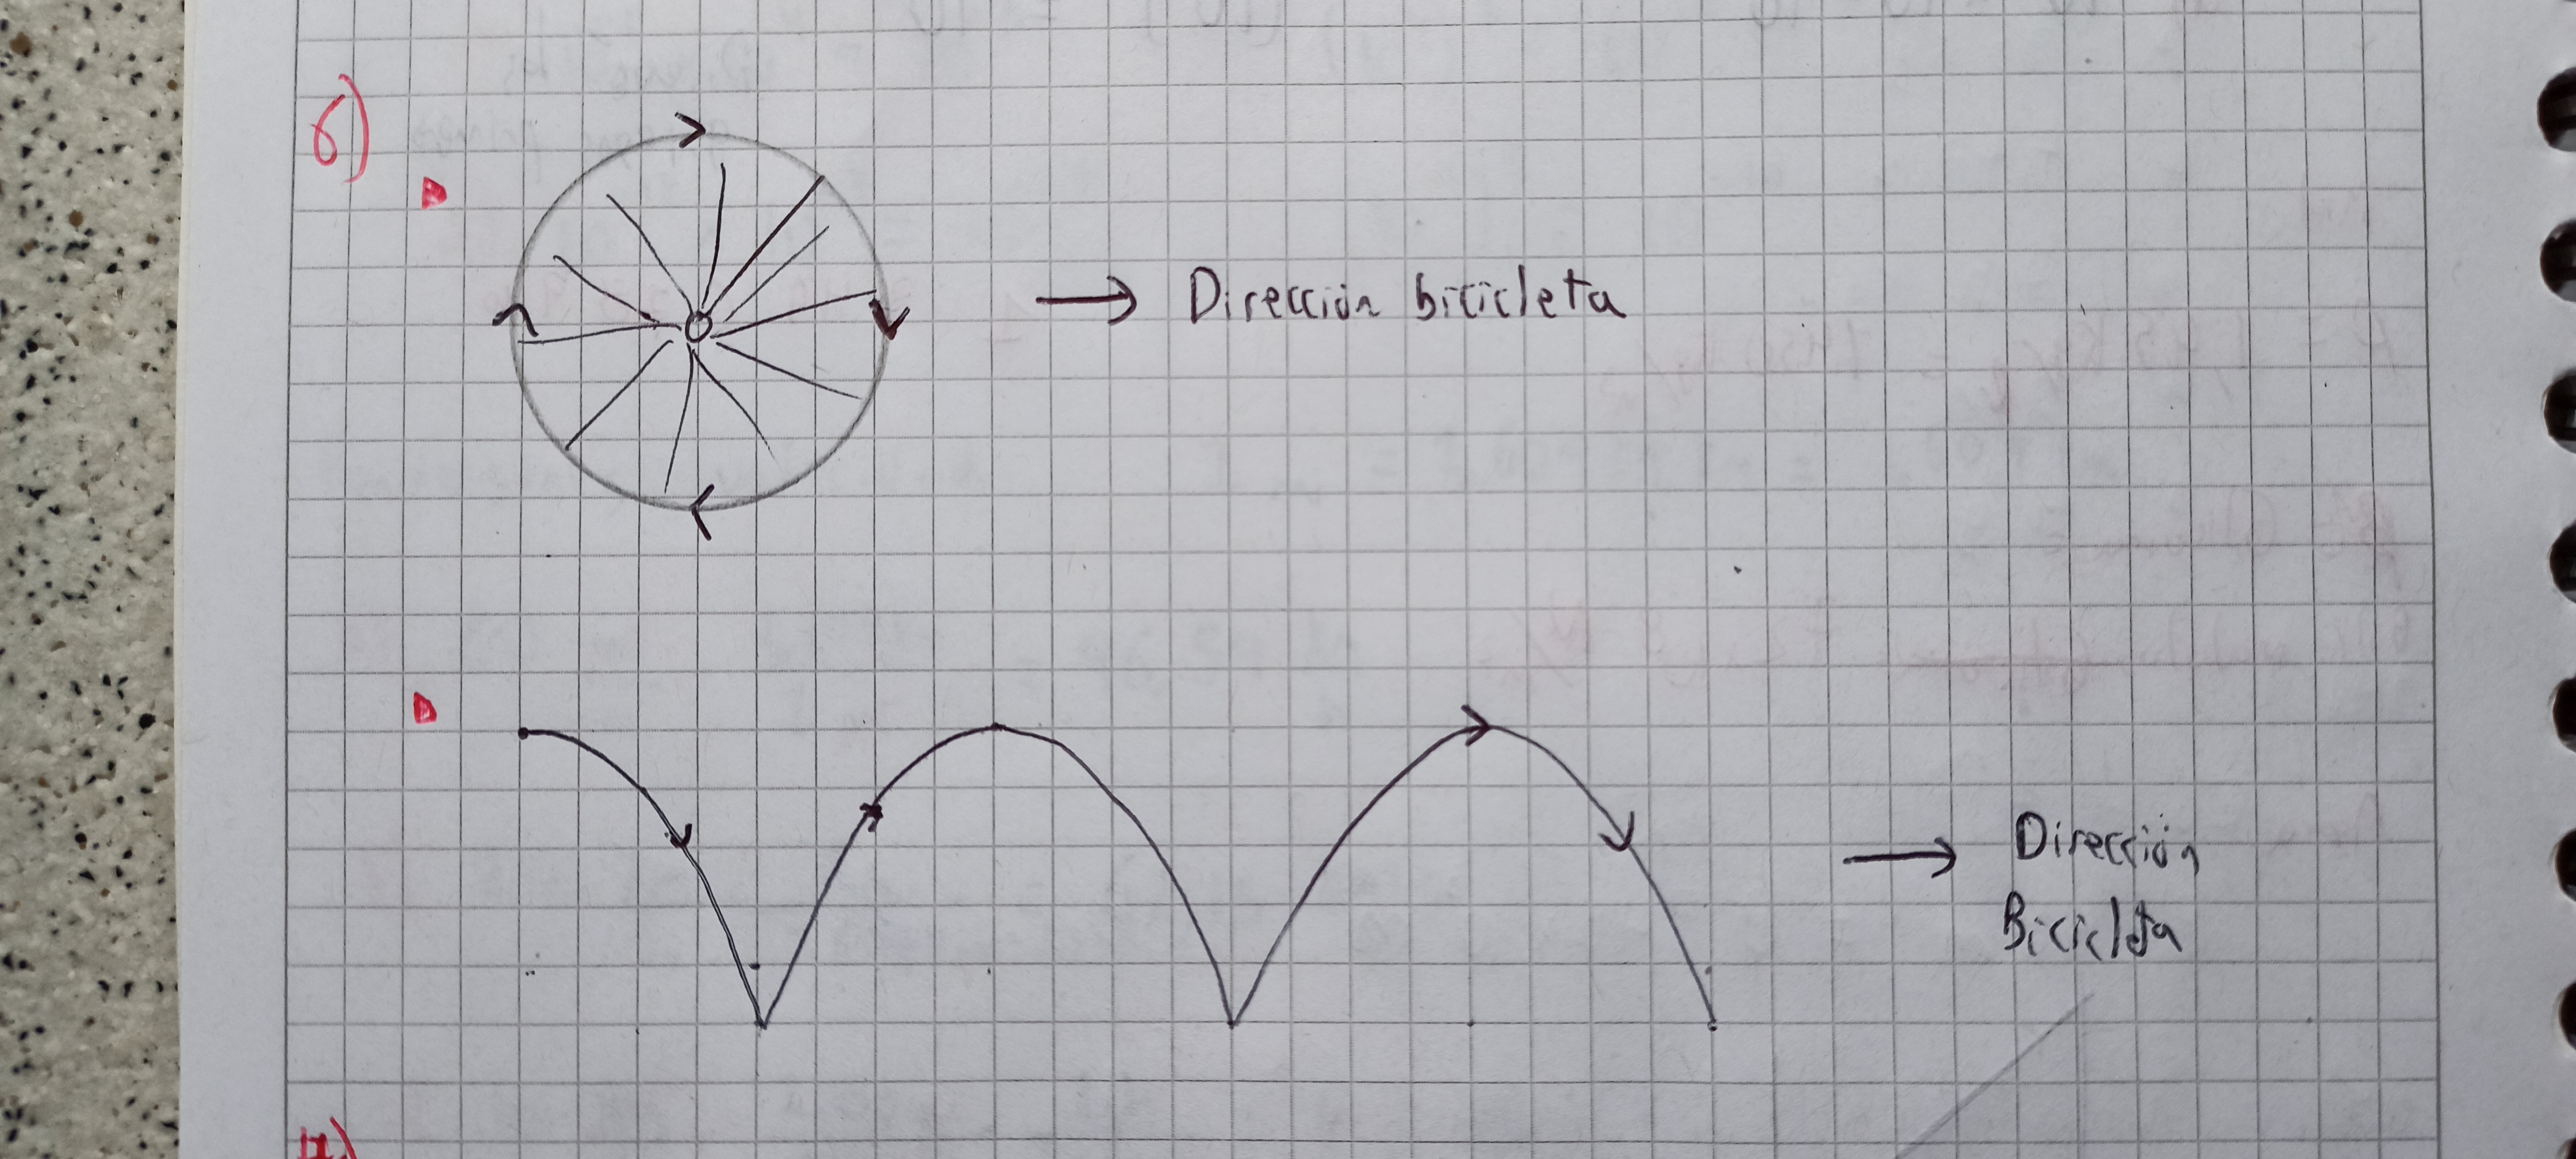 6)
Dirección bicicleta
Dirección
Bicicleta